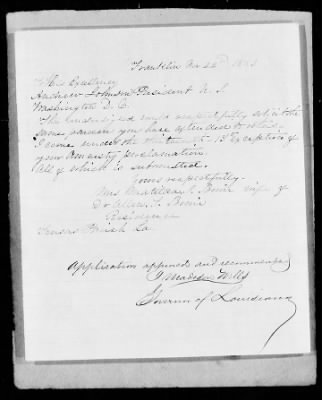 Franklin
His Excellency
Andrew Johnson President U.S.
Washington D.C.
The undersigned would respectfully solicit the
same pardon you have extended to others.
I come under the thirteenth 13 Exception of
your Amnesty proclamation.
All of which is submitted.
Yours respectfully.
Mrs Matilda Bowie wife of
Dr Allen Bowie
Residence
Tensas Parish La.
Application approved and recommended
J Madison Wells
Governor of Louisiana